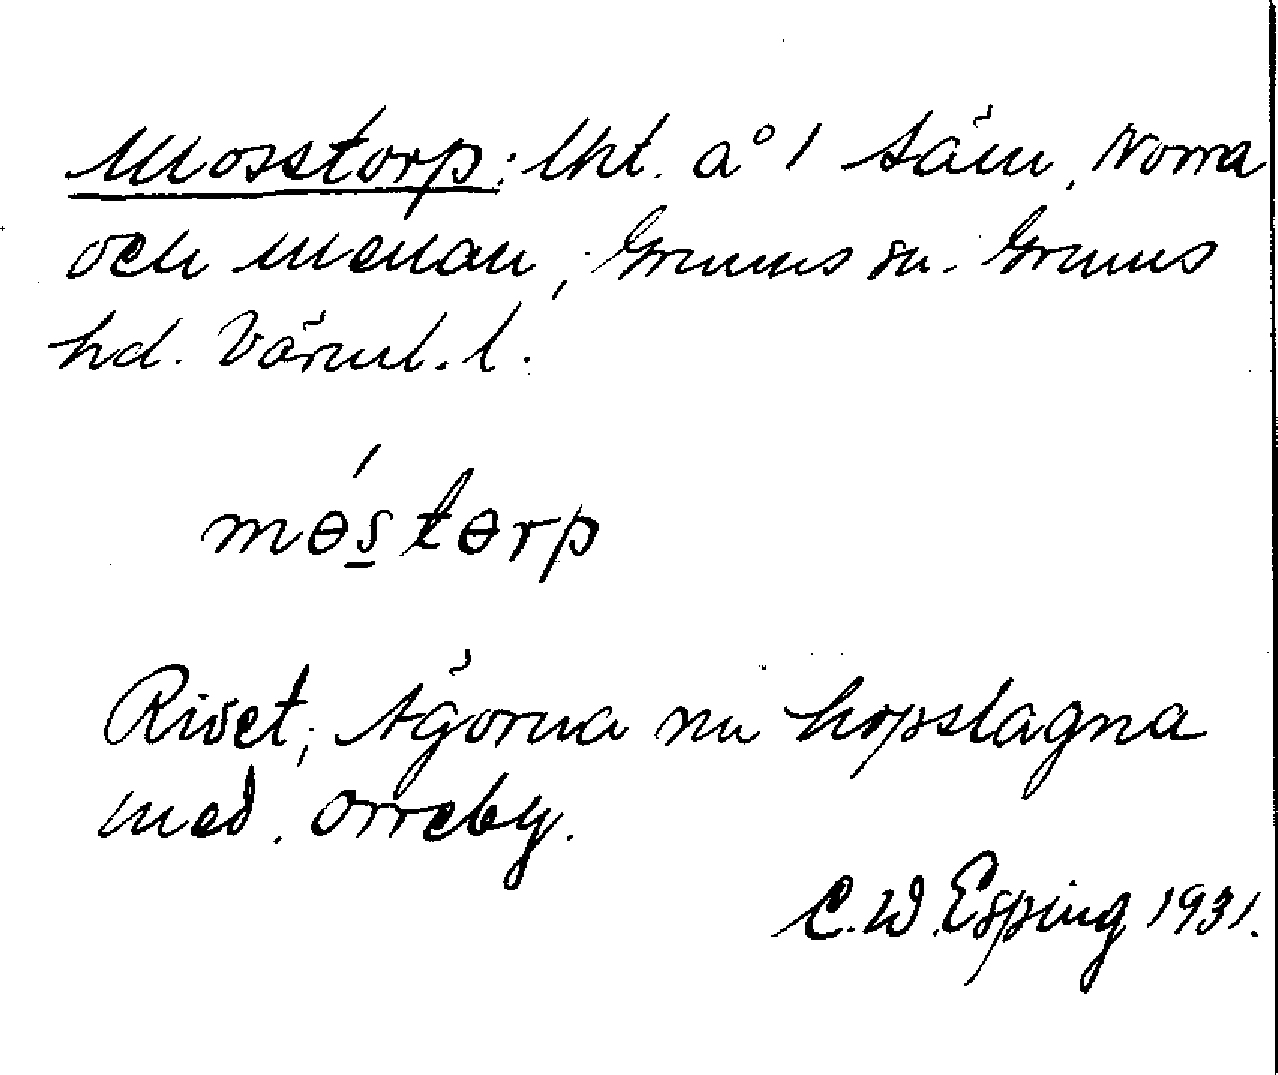 Mosstorp: lht. å 1 Säm, Norra
och Mellan, Grums sn. Grums
hd. Värml. l.
mɵ́storp
Rivet; Ägorna nu hopslagna
med. Orreby.
C.W. Esping 1931.